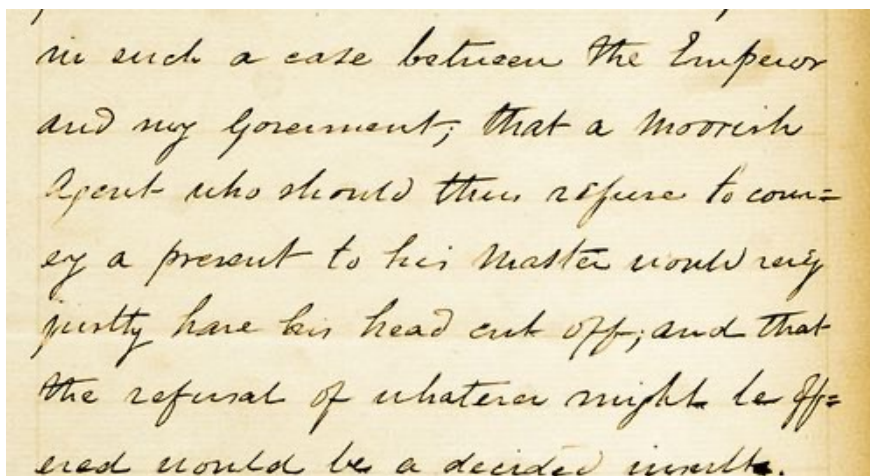 in such a case between the Emperor
and my Goverment; that a Moorish
Agent who should thus refuse to conv=
ey a present to his Master would very
justly have his head cut off; and that
the refusal of whatever might be off=
ered would be a decided insult.